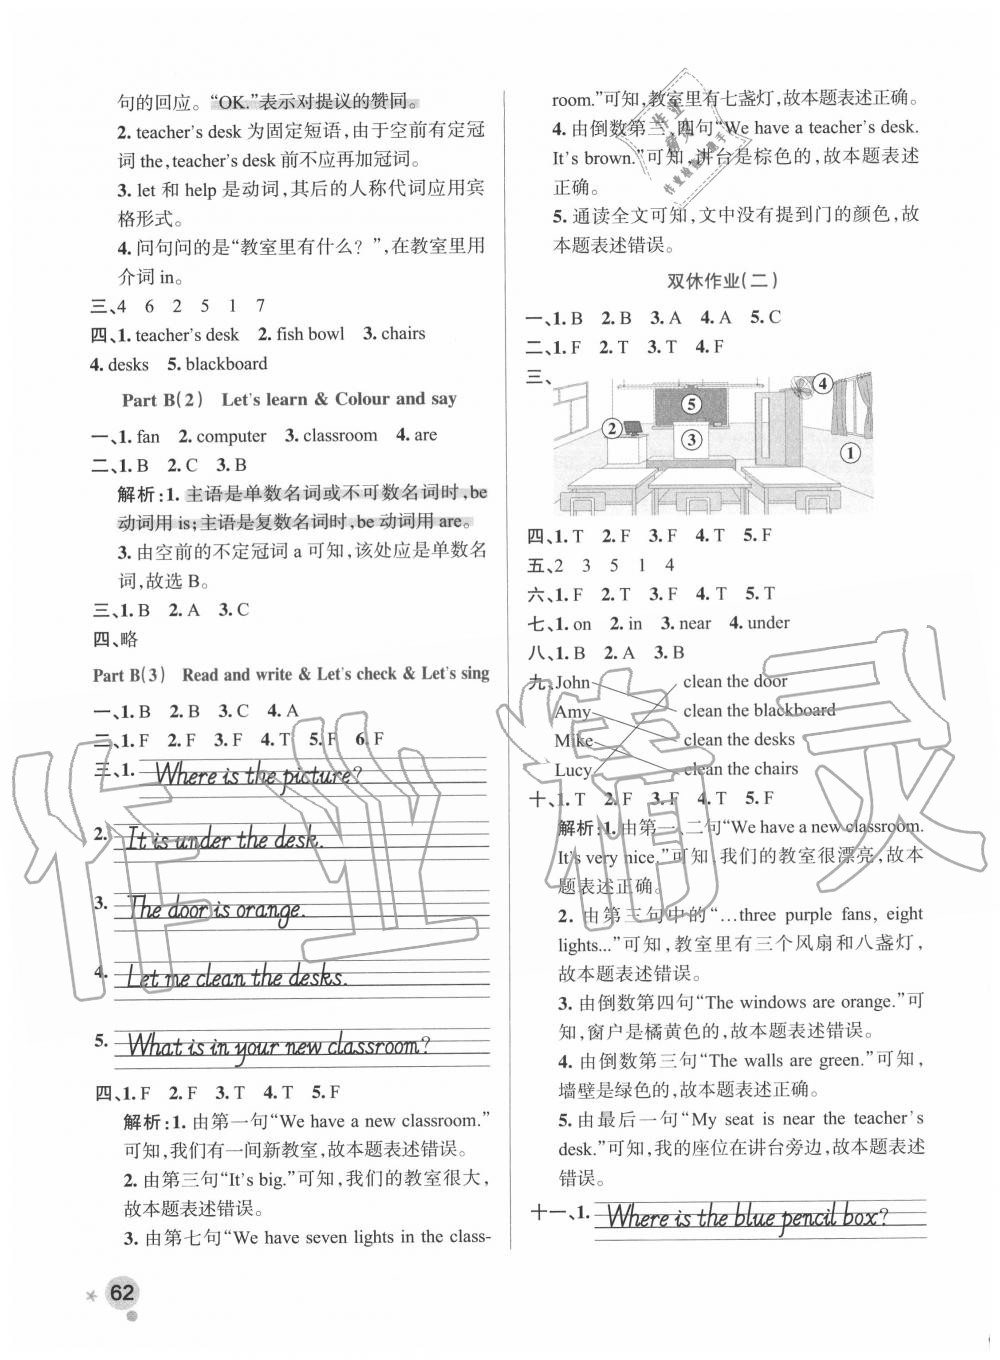 句的回应。“OK.”表示对提议的赞同。
2. teacher's desk 为固定短语,由于空前有定冠
词 the,teacher's desk 前不应再加冠词。
3. let 和 help 是动词,其后的人称代词应用宾
格形式。
4. 问句问的是“教室里有什么？”,在教室里用
介词 in。
三、4 6 2 5 1 7
四、1. teacher's desk 2. fish bowl 3. chairs
4. desks 5. blackboard
Part B(2) Let's learn & Colour and say
一、1. fan 2. computer 3. classroom 4. are
二、1. B 2. C 3. B
解析:1. 主语是单数名词或不可数名词时,be
动词用 is;主语是复数名词时,be 动词用 are。
3. 由空前的不定冠词 a 可知,该处应是单数名
词,故选 B。
三、1. B 2. A 3. C
四、略
Part B(3) Read and write & Let's check & Let's sing
一、1. B 2. B 3. C 4. A
二、1. F 2. F 3. F 4. T 5. F 6. F
三、1. Where is the picture?
2. It is under the desk.
3. The door is orange.
4. Let me clean the desks.
5. What is in your new classroom?
四、1. F 2. F 3. T 4. T 5. F
解析:1. 由第一句“We have a new classroom.”
可知,我们有一间新教室,故本题表述错误。
2. 由第三句“It's big.”可知,我们的教室很大,
故本题表述错误。
3. 由第七句“We have seven lights in the class-
62
room.”可知,教室里有七盏灯,故本题表述正确。
4. 由倒数第三、四句“We have a teacher's desk.
It's brown.”可知,讲台是棕色的,故本题表述
正确。
5. 通读全文可知,文中没有提到门的颜色,故
本题表述错误。
双休作业(二)
一、1. B 2. B 3. A 4. A 5. C
二、1. F 2. T 3. T 4. F
三、
④
⑤
②
③
①
四、1. T 2. F 3. F 4. T 5. F
五、2 3 5 1 4
六、1. F 2. T 3. F 4. T 5. T
七、1. on 2. in 3. near 4. under
八、1. B 2. A 3. B
九、John clean the door
Amy clean the blackboard
Mike clean the desks
Lucy clean the chairs
十、1. T 2. F 3. F 4. T 5. F
解析:1. 由第一、二句“We have a new classroom.
It's very nice.”可知,我们的教室很漂亮,故本
题表述正确。
2. 由第三句中的“…three purple fans, eight
lights...”可知,教室里有三个风扇和八盏灯,
故本题表述错误。
3. 由倒数第四句“The windows are orange.”可
知,窗户是橘黄色的,故本题表述错误。
4. 由倒数第三句“The walls are green.”可知,
墙壁是绿色的,故本题表述正确。
5. 由最后一句“My seat is near the teacher's
desk.”可知,我的座位在讲台旁边,故本题表述
错误。
十一、1. Where is the blue pencil box?
作业精灵